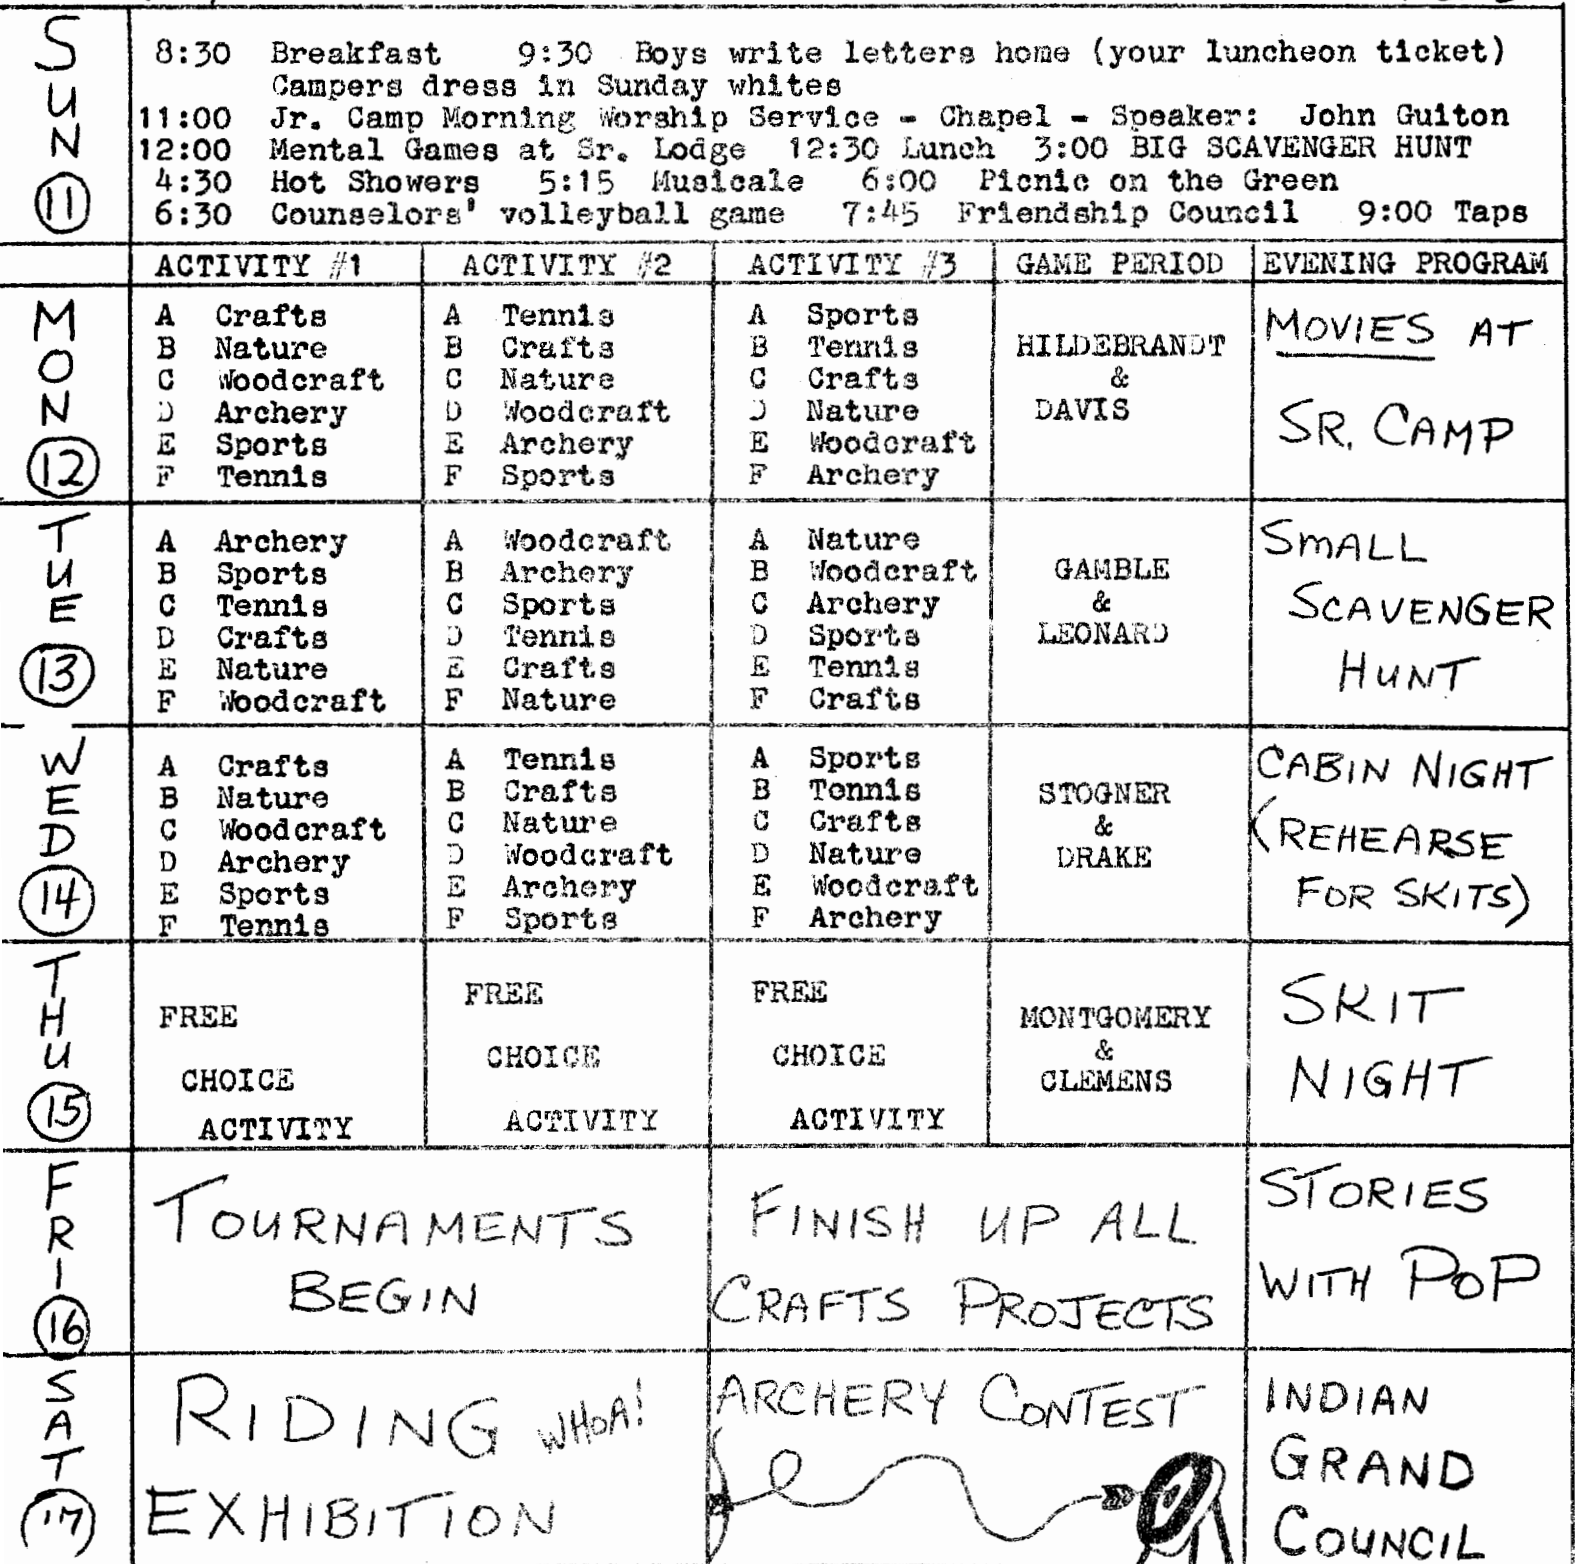 SUN 11
8:30 Breakfast 9:30 Boys write letters home (your luncheon ticket)
Campers dress in Sunday whites
11:00 Jr. Camp Morning Worship Service - Chapel - Speaker: John Guiton
12:00 Mental Games at Sr. Lodge 12:30 Lunch 3:00 BIG SCAVENGER HUNT
4:30 Hot Showers 5:15 Musicale 6:00 Picnic on the Green
6:30 Counselors' volleyball game 7:45 Friendship Council 9:00 Taps
ACTIVITY #1 ACTIVITY #2 ACTIVITY #3 GAME PERIOD EVENING PROGRAM
MON 12
A Crafts
B Nature
C Woodcraft
D Archery
E Sports
F Tennis
A Tennis
B Crafts
C Nature
D Woodcraft
E Archery
F Sports
A Sports
B Tennis
C Crafts
D Nature
E Woodcraft
F Archery
HILDEBRANDT
&
DAVIS
MOVIES AT
SR. CAMP
TUE 13
A Archery
B Sports
C Tennis
D Crafts
E Nature
F Woodcraft
A Woodcraft
B Archery
C Sports
D Tennis
E Crafts
F Nature
A Nature
B Woodcraft
C Archery
D Sports
E Tennis
F Crafts
GAMBLE
&
LEONARD
SMALL
SCAVENGER
HUNT
WED 14
A Crafts
B Nature
C Woodcraft
D Archery
E Sports
F Tennis
A Tennis
B Crafts
C Nature
D Woodcraft
E Archery
F Sports
A Sports
B Tennis
C Crafts
D Nature
E Woodcraft
F Archery
STOGNER
&
DRAKE
CABIN NIGHT
(REHEARSE
FOR SKITS)
THU 15
FREE
CHOICE
ACTIVITY
FREE
CHOICE
ACTIVITY
FREE
CHOICE
ACTIVITY
MONTGOMERY
&
CLEMENS
SKIT
NIGHT
FRI 16
TOURNAMENTS
BEGIN
FINISH UP ALL
CRAFTS PROJECTS
STORIES
WITH POP
SAT 17
RIDING WHOA!
EXHIBITION
ARCHERY CONTEST
INDIAN
GRAND
COUNCIL